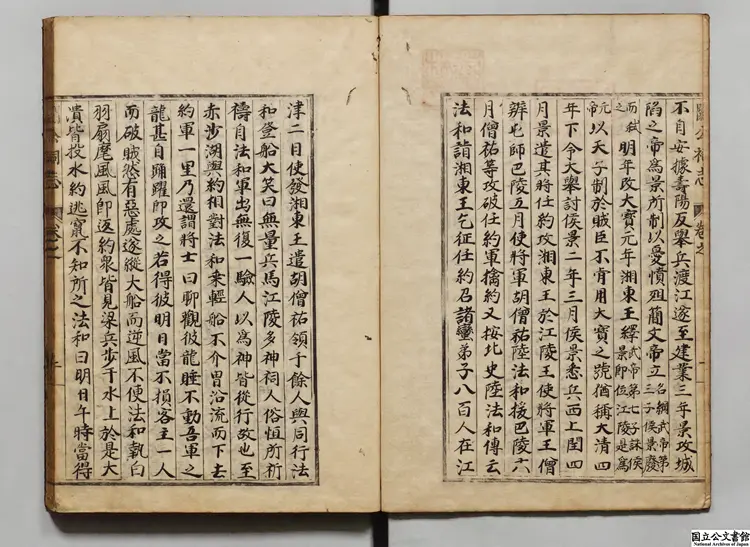 不自安據壽陽反舉兵渡江遂至建業三年景攻城
陷之帝爲景所制以憂憤殂簡文帝立名綱武帝第三子侯景廢
之而弑明年改大寶元年湘東王繹武帝第七子誅侯景卽位江陵是爲
元帝以天子制於賊臣不肯用大寶之號猶稱大清四
年下令大舉討侯景二年三月侯景悉兵西上閏四
月景遣其將任約攻湘東王於江陵王使將軍王僧
辨屯師巴陵五月使將軍胡僧祐陸法和援巴陵六
月僧祐等攻破任約軍擒約又按北史陸法和傳云
法和詣湘東王乞征任約召諸蠻弟子八百人在江
津二日使發湘東王遣胡僧祐領千餘人與同行法
和登船大笑曰無量兵馬江陵多神祠人俗恒所祈
禱自法和軍出無復一驗人以爲神皆從行故也至
赤沙湖與約相對法和乘輕船不介冑沿流而下去
約軍一里乃還謂將士曰聊觀彼龍睡不動吾軍之
龍甚自踴躍卽攻之若得彼明日當不損客主一人
而破賊然有惡處遂縱大船而逆風不便法和執白
羽扇麾風風卽返約衆皆見梁兵步于水上於是大
潰皆投水約逃竄不知所之法和曰明日午時當得
国立公文書館
National Archives of Japan